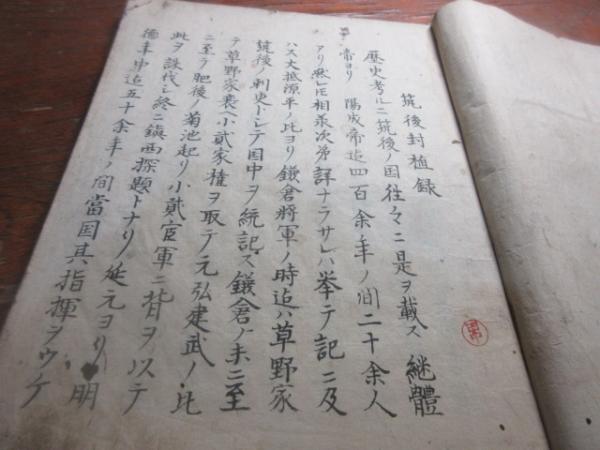 筑後封植録
歴史考ルニ筑後ノ国往々ニ是ヲ載ス 継體
帝ヨリ 陽成帝迄四百余年ノ間二十余人
アリ然レ𪜈相承次第詳ナラサレハ挙テ記ニ及
ハス大抵源平ノ比ヨリ鎌倉将軍ノ時迄ハ草野家
筑後ノ刺史トシテ国中ヲ統記ス鎌倉ノ末ニ至
テ草野家衰ヘ小貳家権ヲ取テ元弘建武ノ比
ニ至テ肥後ノ菊池起リ小貳官軍ニ背ヲ以テ
此ヲ誅伐シ終ニ鎮西探題トナリ延元ヨリ明
徳年中迄五十余年ノ間當国其指揮ヲウケ